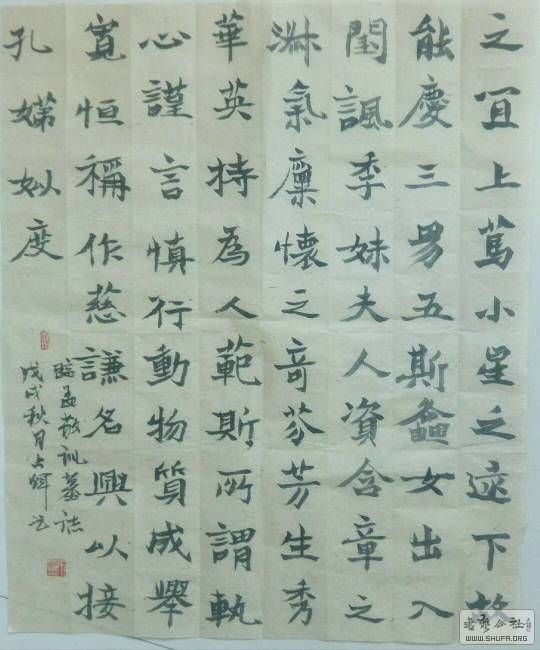 之宜上篤小星之逮下故
能慶三男五斯螽女出入
閨諷季妹夫人資含章之
淑氣廩懷之奇芬芳生秀
華英持為人範斯所謂軌
心謹言慎行動物質成舉
寬恒稱作慈謙名興以接
孔娣姒度
臨孟敬訓墓誌
戊戌秋月占輝書
書藝公社
WWW.SHUFA.ORG